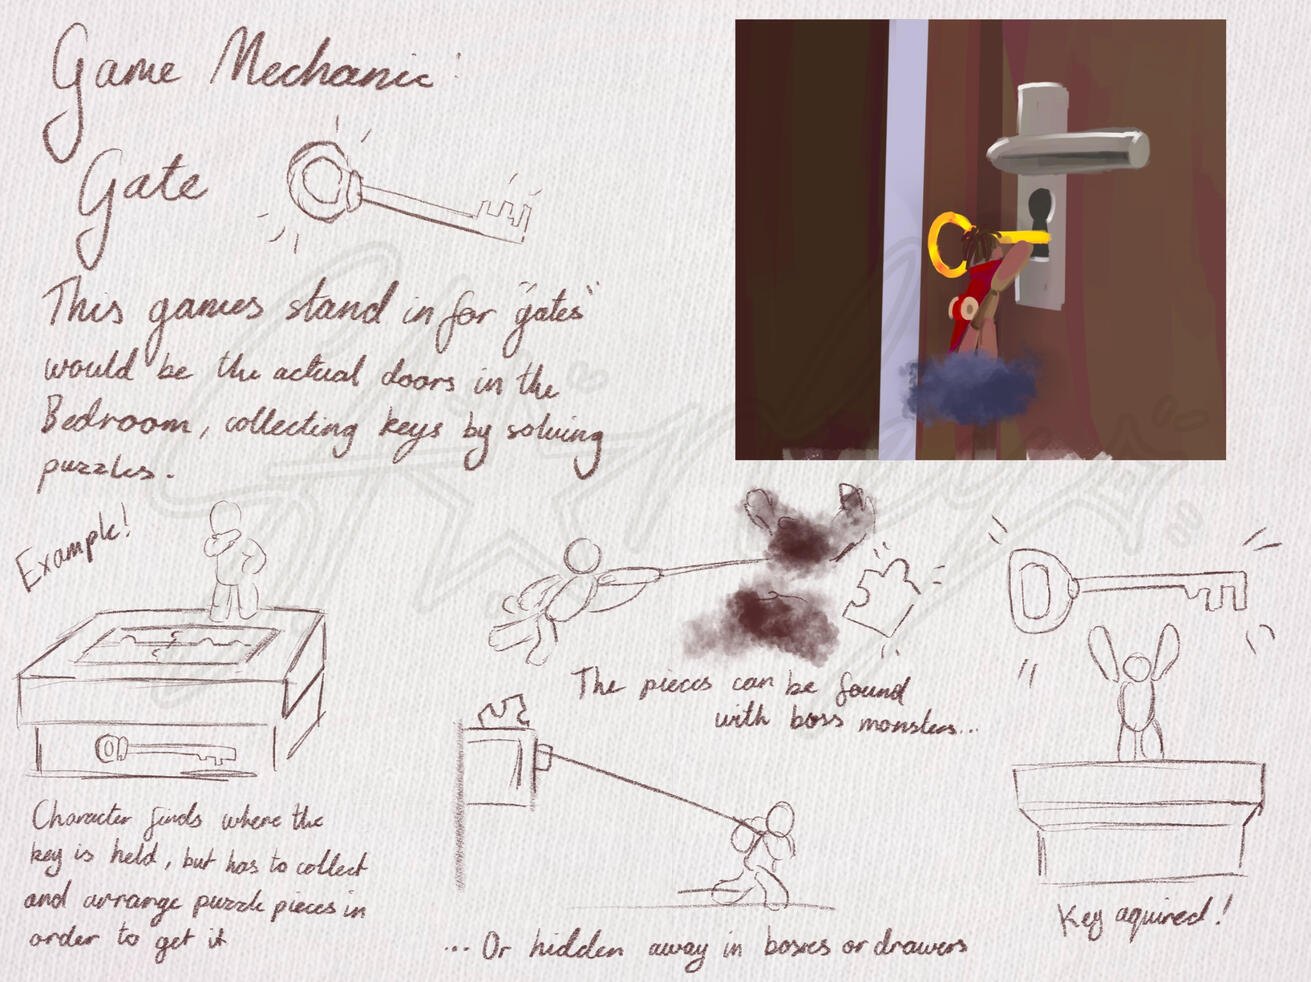 Game Mechanic:
Gate
This games stand in for "gates"
would be the actual doors in the
Bedroom, collecting keys by solving
puzzles.
Example!
The pieces can be found
with boss monsters...
Character finds where the
key is held, but has to collect
and arrange puzzle pieces in
order to get it
... Or hidden away in boxes or drawers
Key aquired!